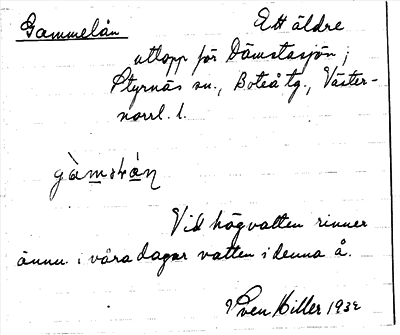 Gammelån
Ett äldre
utlopp för Dämstasjön;
Styrnäs sn., Boteå tg., Väster-
norrl. l.
Vid högvatten rinner
ännu i våra dagar vatten i denna å.
Sven Hiller 1932